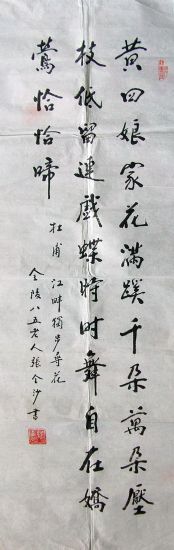 黄四娘家花满蹊千朵萬朵壓
枝低留連戲蝶時时舞自在嬌
鶯恰恰啼
杜甫 江畔獨步尋花
金陵八五老人張金沙書